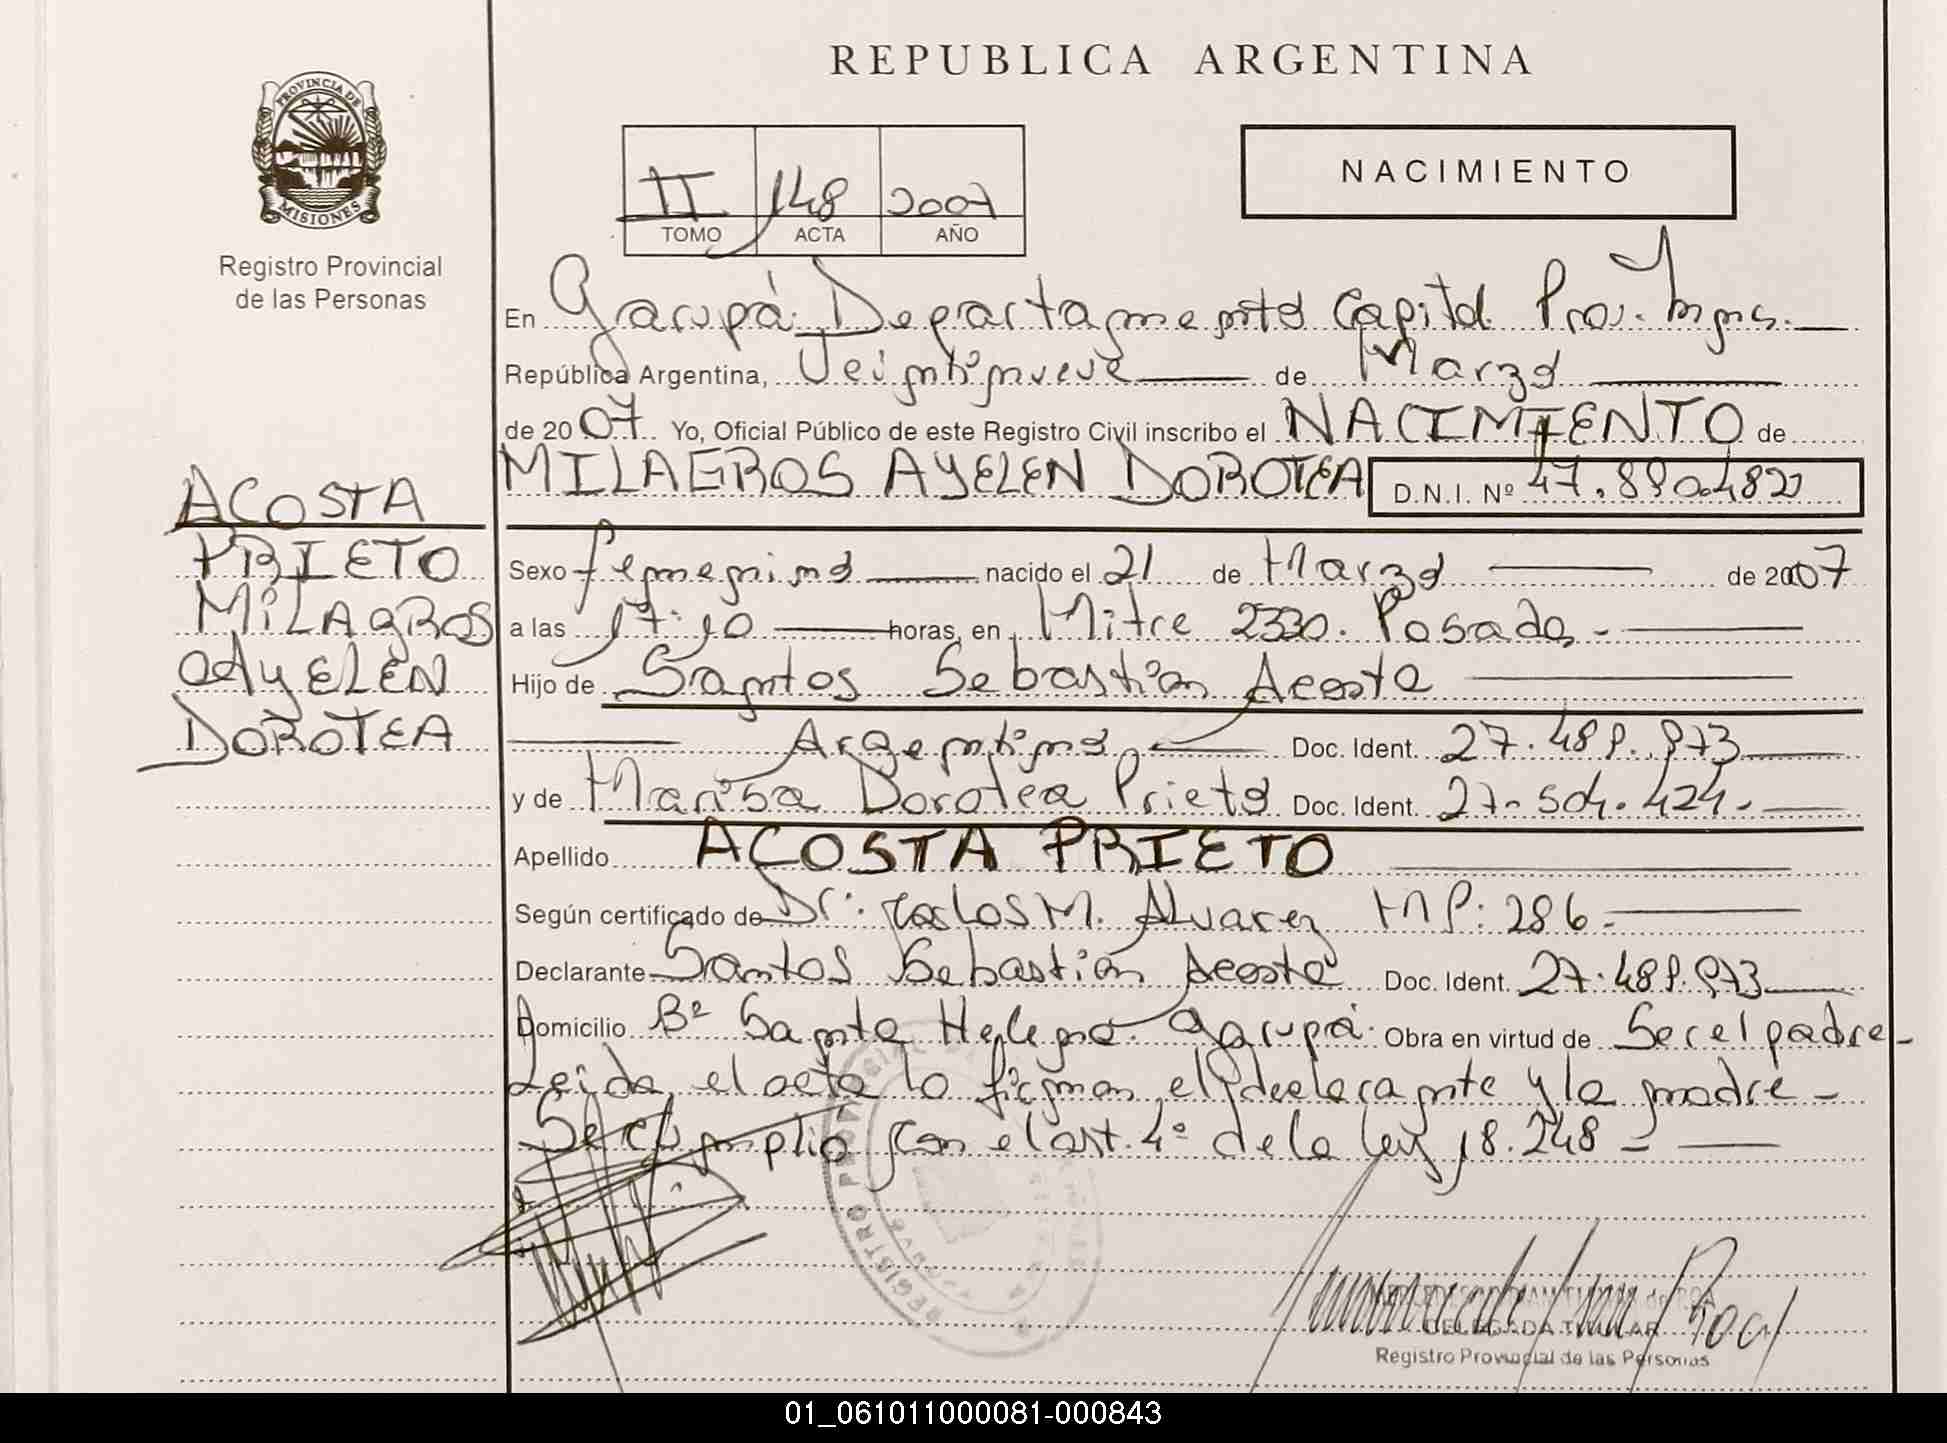 REPUBLICA ARGENTINA
PROVINCIA DE
MISIONES
Registro Provincial
de las Personas
NACIMIENTO
II 148 2007
TOMO ACTA AÑO
En Garupá Departamento Capital Prov. Mnes.
República Argentina, Veintinueve de Marzo
de 2007 Yo, Oficial Público de este Registro Civil inscribo el NACIMIENTO de
MILAGROS AYELEN DOROTEA D.N.I. Nº
ACOSTA
PRIETO
MILAGROS
AYELEN
DOROTEA
Sexo femenino nacido el 21 de Marzo de 2007
a las 17:10 horas, en Mitre 2330. Posadas
Hijo de Santos Sebastián Acosta
Argentino Doc. Ident. 27.489.973
y de Marisa Dorotea Prieto Doc. Ident. 27.504.424.
Apellido ACOSTA PRIETO
Según certificado de Dr: Carlos M. Alvarez MP: 286
Declarante Santos Sebastián Acosta Doc. Ident. 27.489.973
Domicilio Bº Santa Helena Garupá. Obra en virtud de Ser el padre
Leida el acta lo firman el declarante y la madre
Se cumplio con el art. 4º de la ley 18.248
REGISTRO PROVINCIAL
DELEGADA TITULAR
Registro Provincial de las Personas
01_061011000081-000843